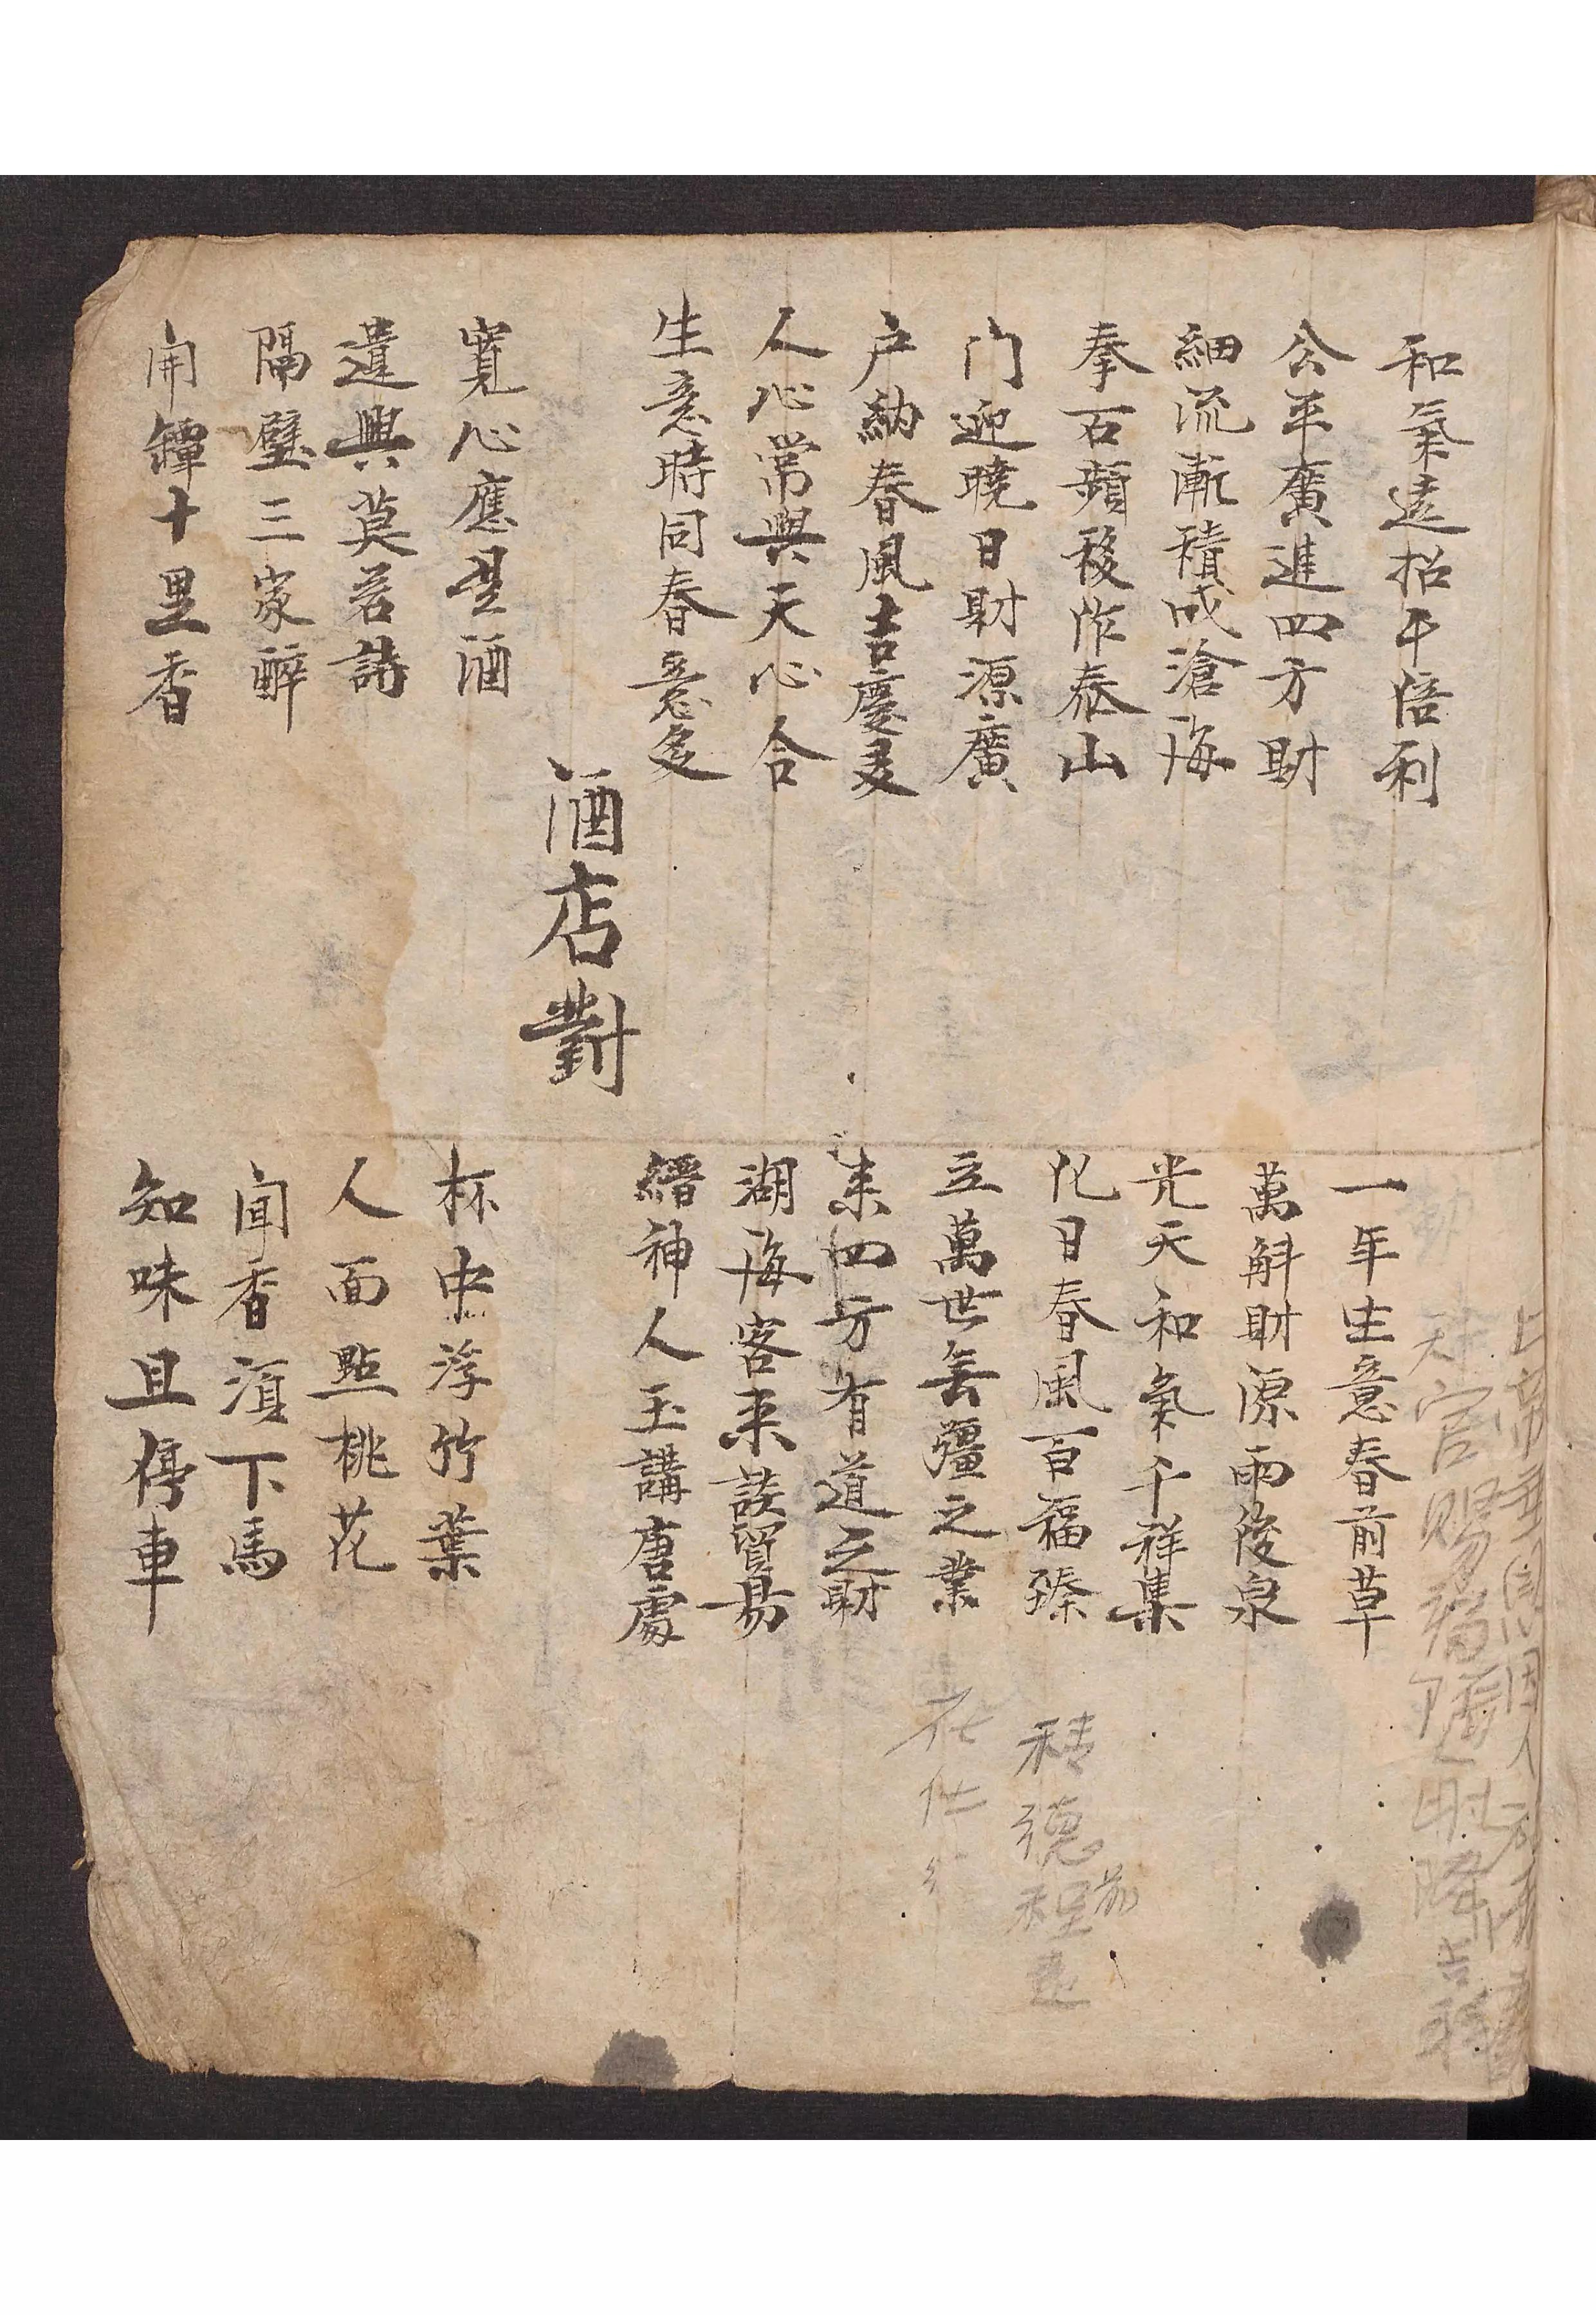 和氣遠招千倍利
公平廣進四方財
細流漸積成滄海
拳石頻移作泰山
门迎曉日財源廣
户納春風吉慶多
人心常與天心合
生意時同春意多
一年生意春前草
萬斛財源雨後泉
光天和氣千祥集
化日春風百福臻
立萬世無疆之業
来四方有道之財
湖海客来談貿易
縉神人玉講唐處
酒店對
寬心應是酒
遣興莫若詩
隔壁三家醉
開罈十里香
杯中浮竹葉
人面點桃花
聞香須下馬
知味且停車
天官赐福
降吉祥
德程遠